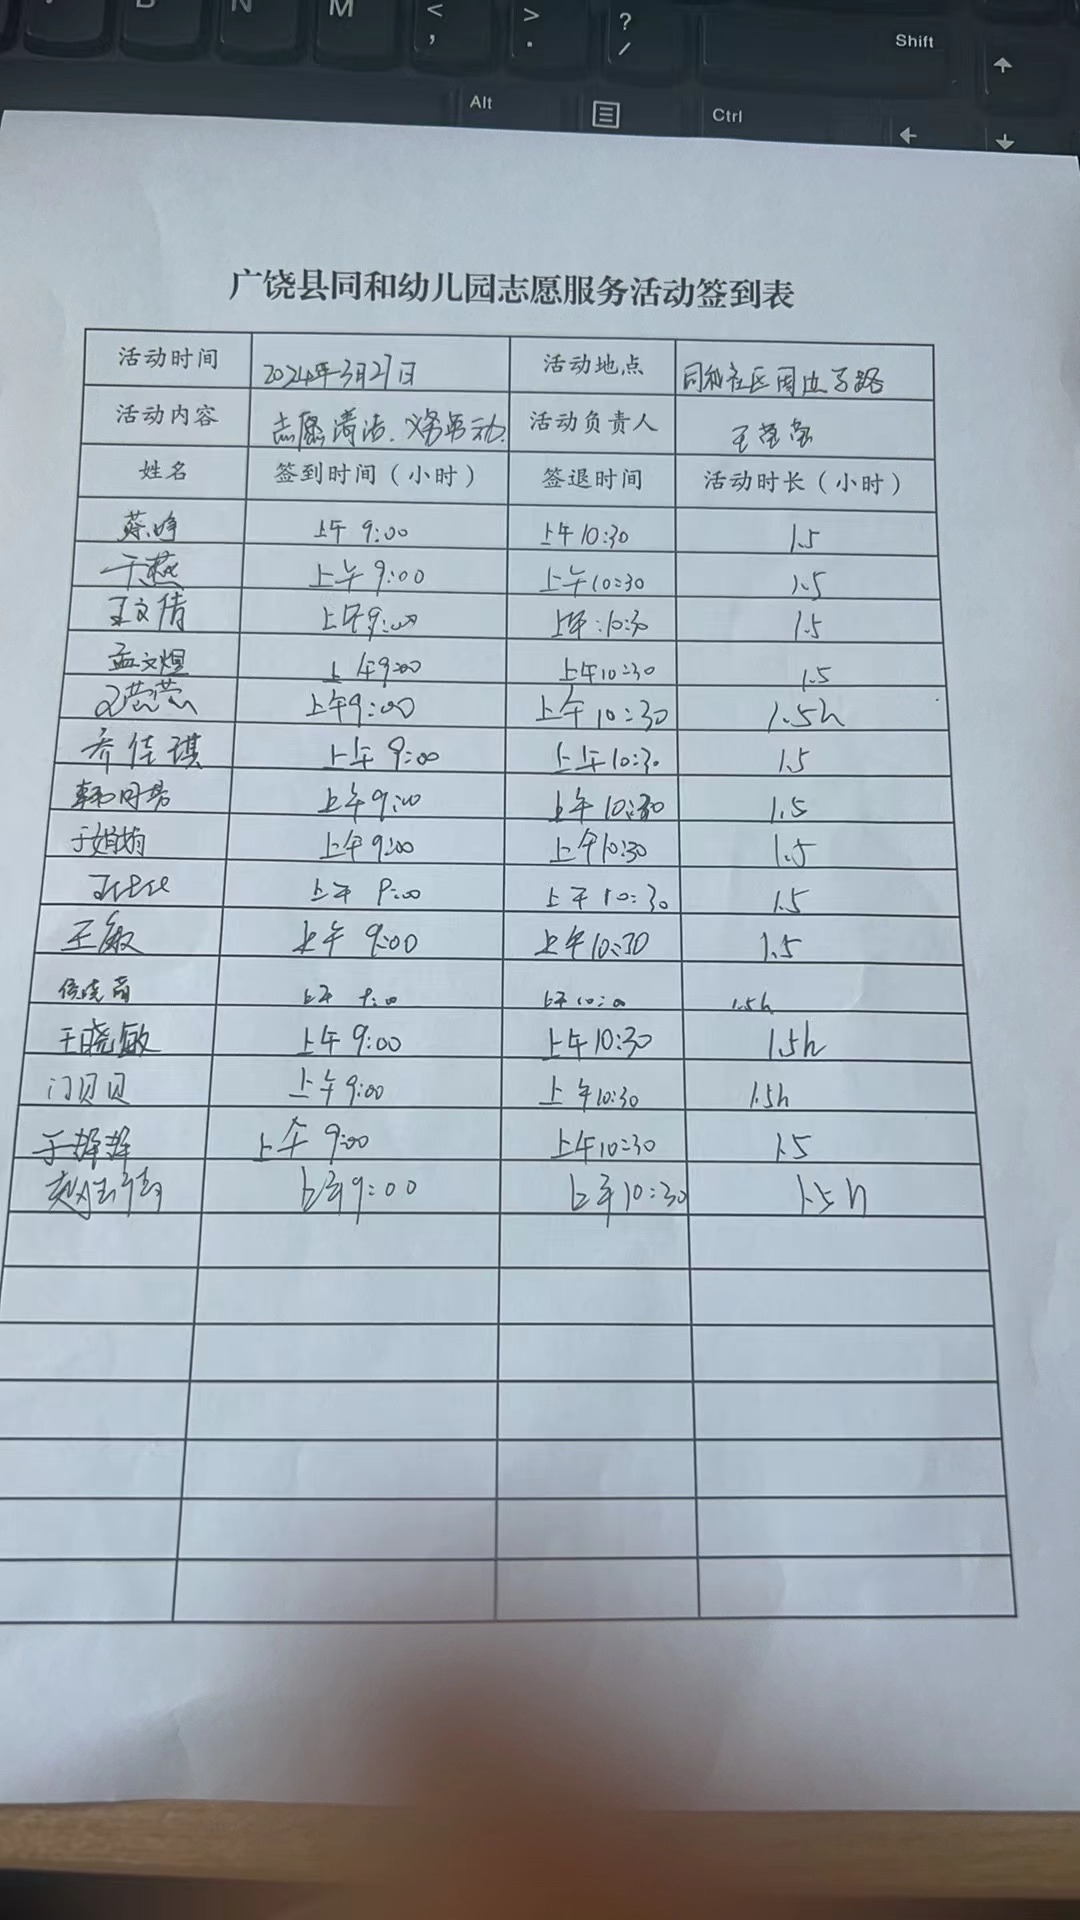 N M < ,
> .
? /
Shift
Alt
Ctrl
广饶县同和幼儿园志愿服务活动签到表
活动时间 2024年3月27日 活动地点 同和社区周边马路
活动内容 志愿清洁、义务劳动. 活动负责人 王莹莹
姓名 签到时间（小时） 签退时间 活动时长（小时）
蔡峥 上午 9:00 上午10:30 1.5
于燕 上午 9:00 上午10:30 1.5
王文倩 上午9:00 上午:10:30 1.5
孟文煜 上午9:00 上午10:30 1.5
上午9:00 上午10:30 1.5h
乔佳琪 上午 9:00 上午10:30 1.5
上午9:00 上午10:30 1.5
于娟娟 上午9:00 上午10:30 1.5
上午 9:00 上午10:30 1.5
王敏 上午 9:00 上午10:30 1.5
上午 1.5h
王晓敏 上午 9:00 上午10:30 1.5h
门贝贝 上午9:00 上午10:30 1.5h
上午 9:00 上午10:30 1.5
上午9:00 上午10:30 1.5h